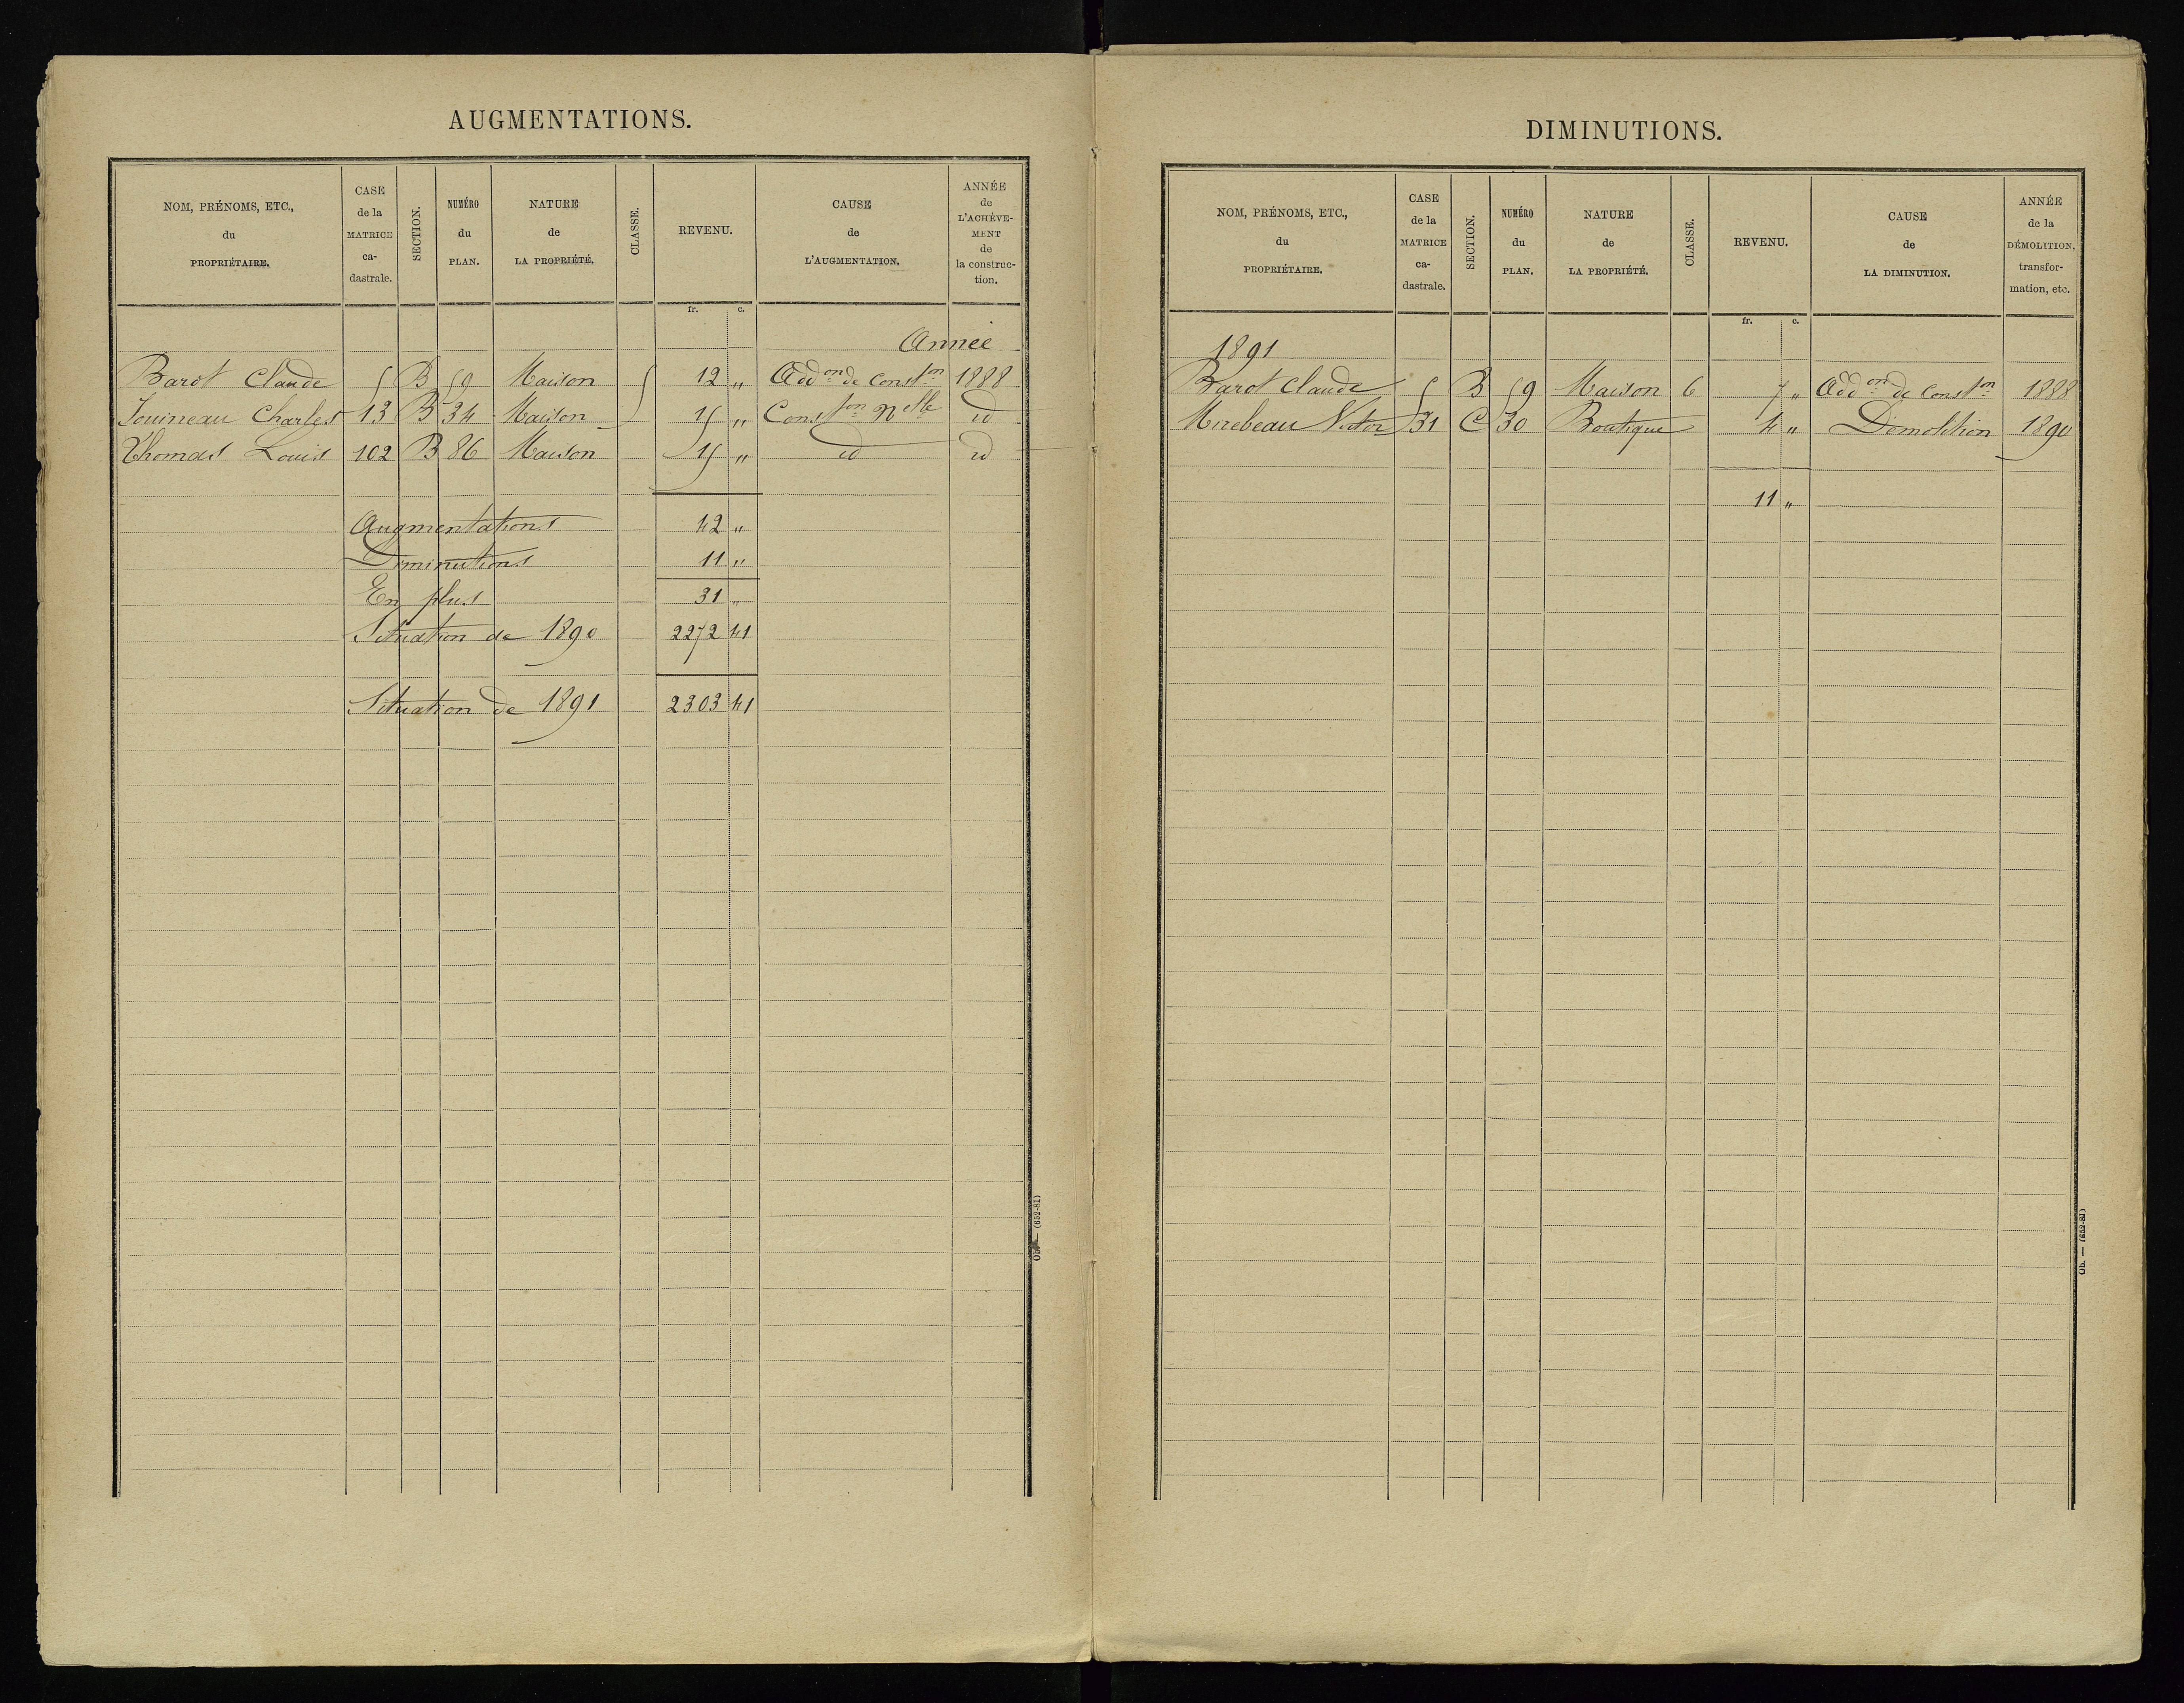 AUGMENTATIONS.
NOM, PRÉNOMS, ETC., du PROPRIÉTAIRE.
CASE de la MATRICE ca-dastrale.
SECTION.
NUMÉRO du PLAN.
NATURE de LA PROPRIÉTÉ.
CLASSE.
REVENU.
CAUSE de L'AUGMENTATION.
ANNÉE de L'ACHÈVE-MENT de la construc-tion.
fr. c.
Année
Barot Claude 5 B 59 Maison 5 12 " Addon de Conston 1888
Jouineau Charles 13 B 34 Maison 15 " Conston nelle id
Thomas Louis 102 B 86 Maison 15 " id id
Augmentations 42 "
Diminutions 11 "
En plus 31 "
Situation de 1890 2272 41
Situation de 1891 2303 41
Ob. — (652-81)
DIMINUTIONS.
NOM, PRÉNOMS, ETC., du PROPRIÉTAIRE.
CASE de la MATRICE ca-dastrale.
SECTION.
NUMÉRO du PLAN.
NATURE de LA PROPRIÉTÉ.
CLASSE.
REVENU.
CAUSE de LA DIMINUTION.
ANNÉE de la DÉMOLITION, transfor-mation, etc.
fr. c.
1891
Barot Claude 5 B 59 Maison 6 7 " Addon de Conston 1888
Mirebeau Victor 31 C 30 Boutique 4 " Démolition 1890
11 "
Ob. — (652-81)